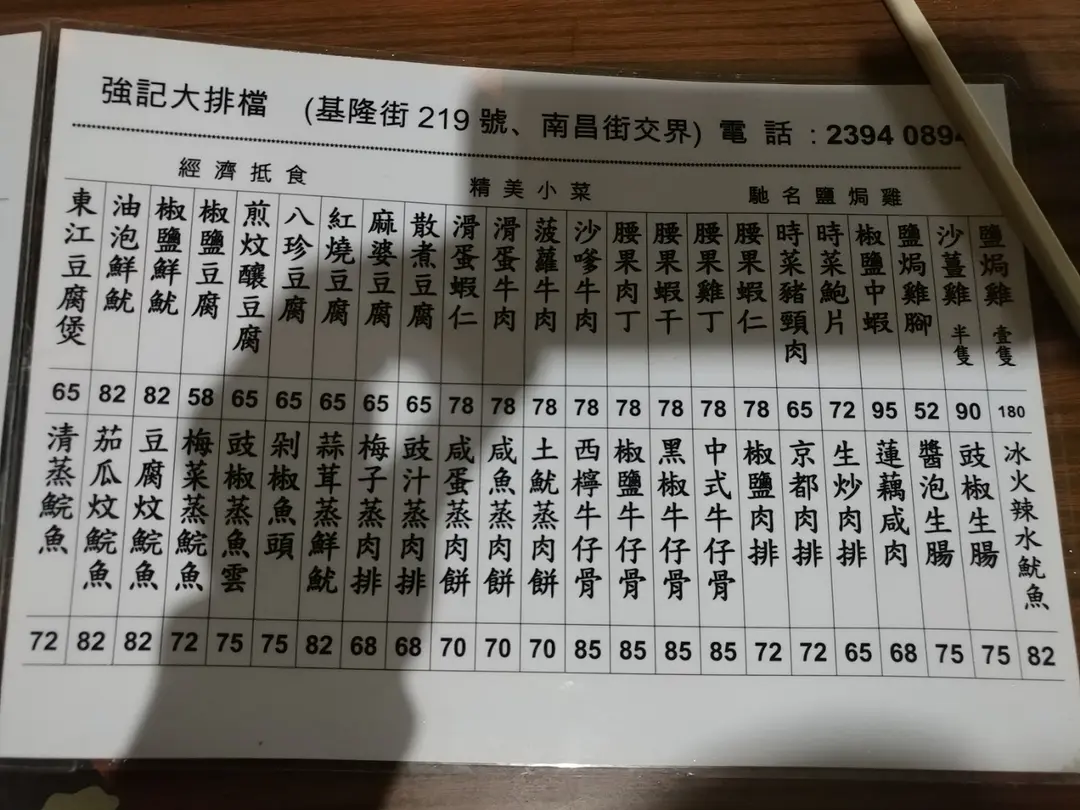 強記大排檔 (基隆街 219 號、南昌街交界) 電話 : 2394 0894
馳名鹽焗雞
精美小菜
經濟抵食
鹽焗雞 壹隻
180
沙薑雞 半隻
90
鹽焗雞腳
52
椒鹽中蝦
95
時菜鮑片
72
時菜豬頸肉
65
腰果蝦仁
78
腰果雞丁
78
腰果蝦干
78
腰果肉丁
78
沙嗲牛肉
78
菠蘿牛肉
78
滑蛋牛肉
78
滑蛋蝦仁
78
散煮豆腐
65
麻婆豆腐
65
紅燒豆腐
65
八珍豆腐
65
煎炆釀豆腐
65
椒鹽豆腐
58
椒鹽鮮魷
82
油泡鮮魷
82
東江豆腐煲
65
冰火辣水魷魚
82
豉椒生腸
75
醬泡生腸
75
蓮藕咸肉
68
生炒肉排
65
京都肉排
72
椒鹽肉排
72
中式牛仔骨
85
黑椒牛仔骨
85
椒鹽牛仔骨
85
西檸牛仔骨
85
土魷蒸肉餅
70
咸魚蒸肉餅
70
咸蛋蒸肉餅
70
豉汁蒸肉排
68
梅子蒸肉排
68
蒜茸蒸鮮魷
82
剁椒魚頭
75
豉椒蒸魚雲
75
梅菜蒸鯇魚
72
豆腐炆鯇魚
82
茄瓜炆鯇魚
82
清蒸鯇魚
72